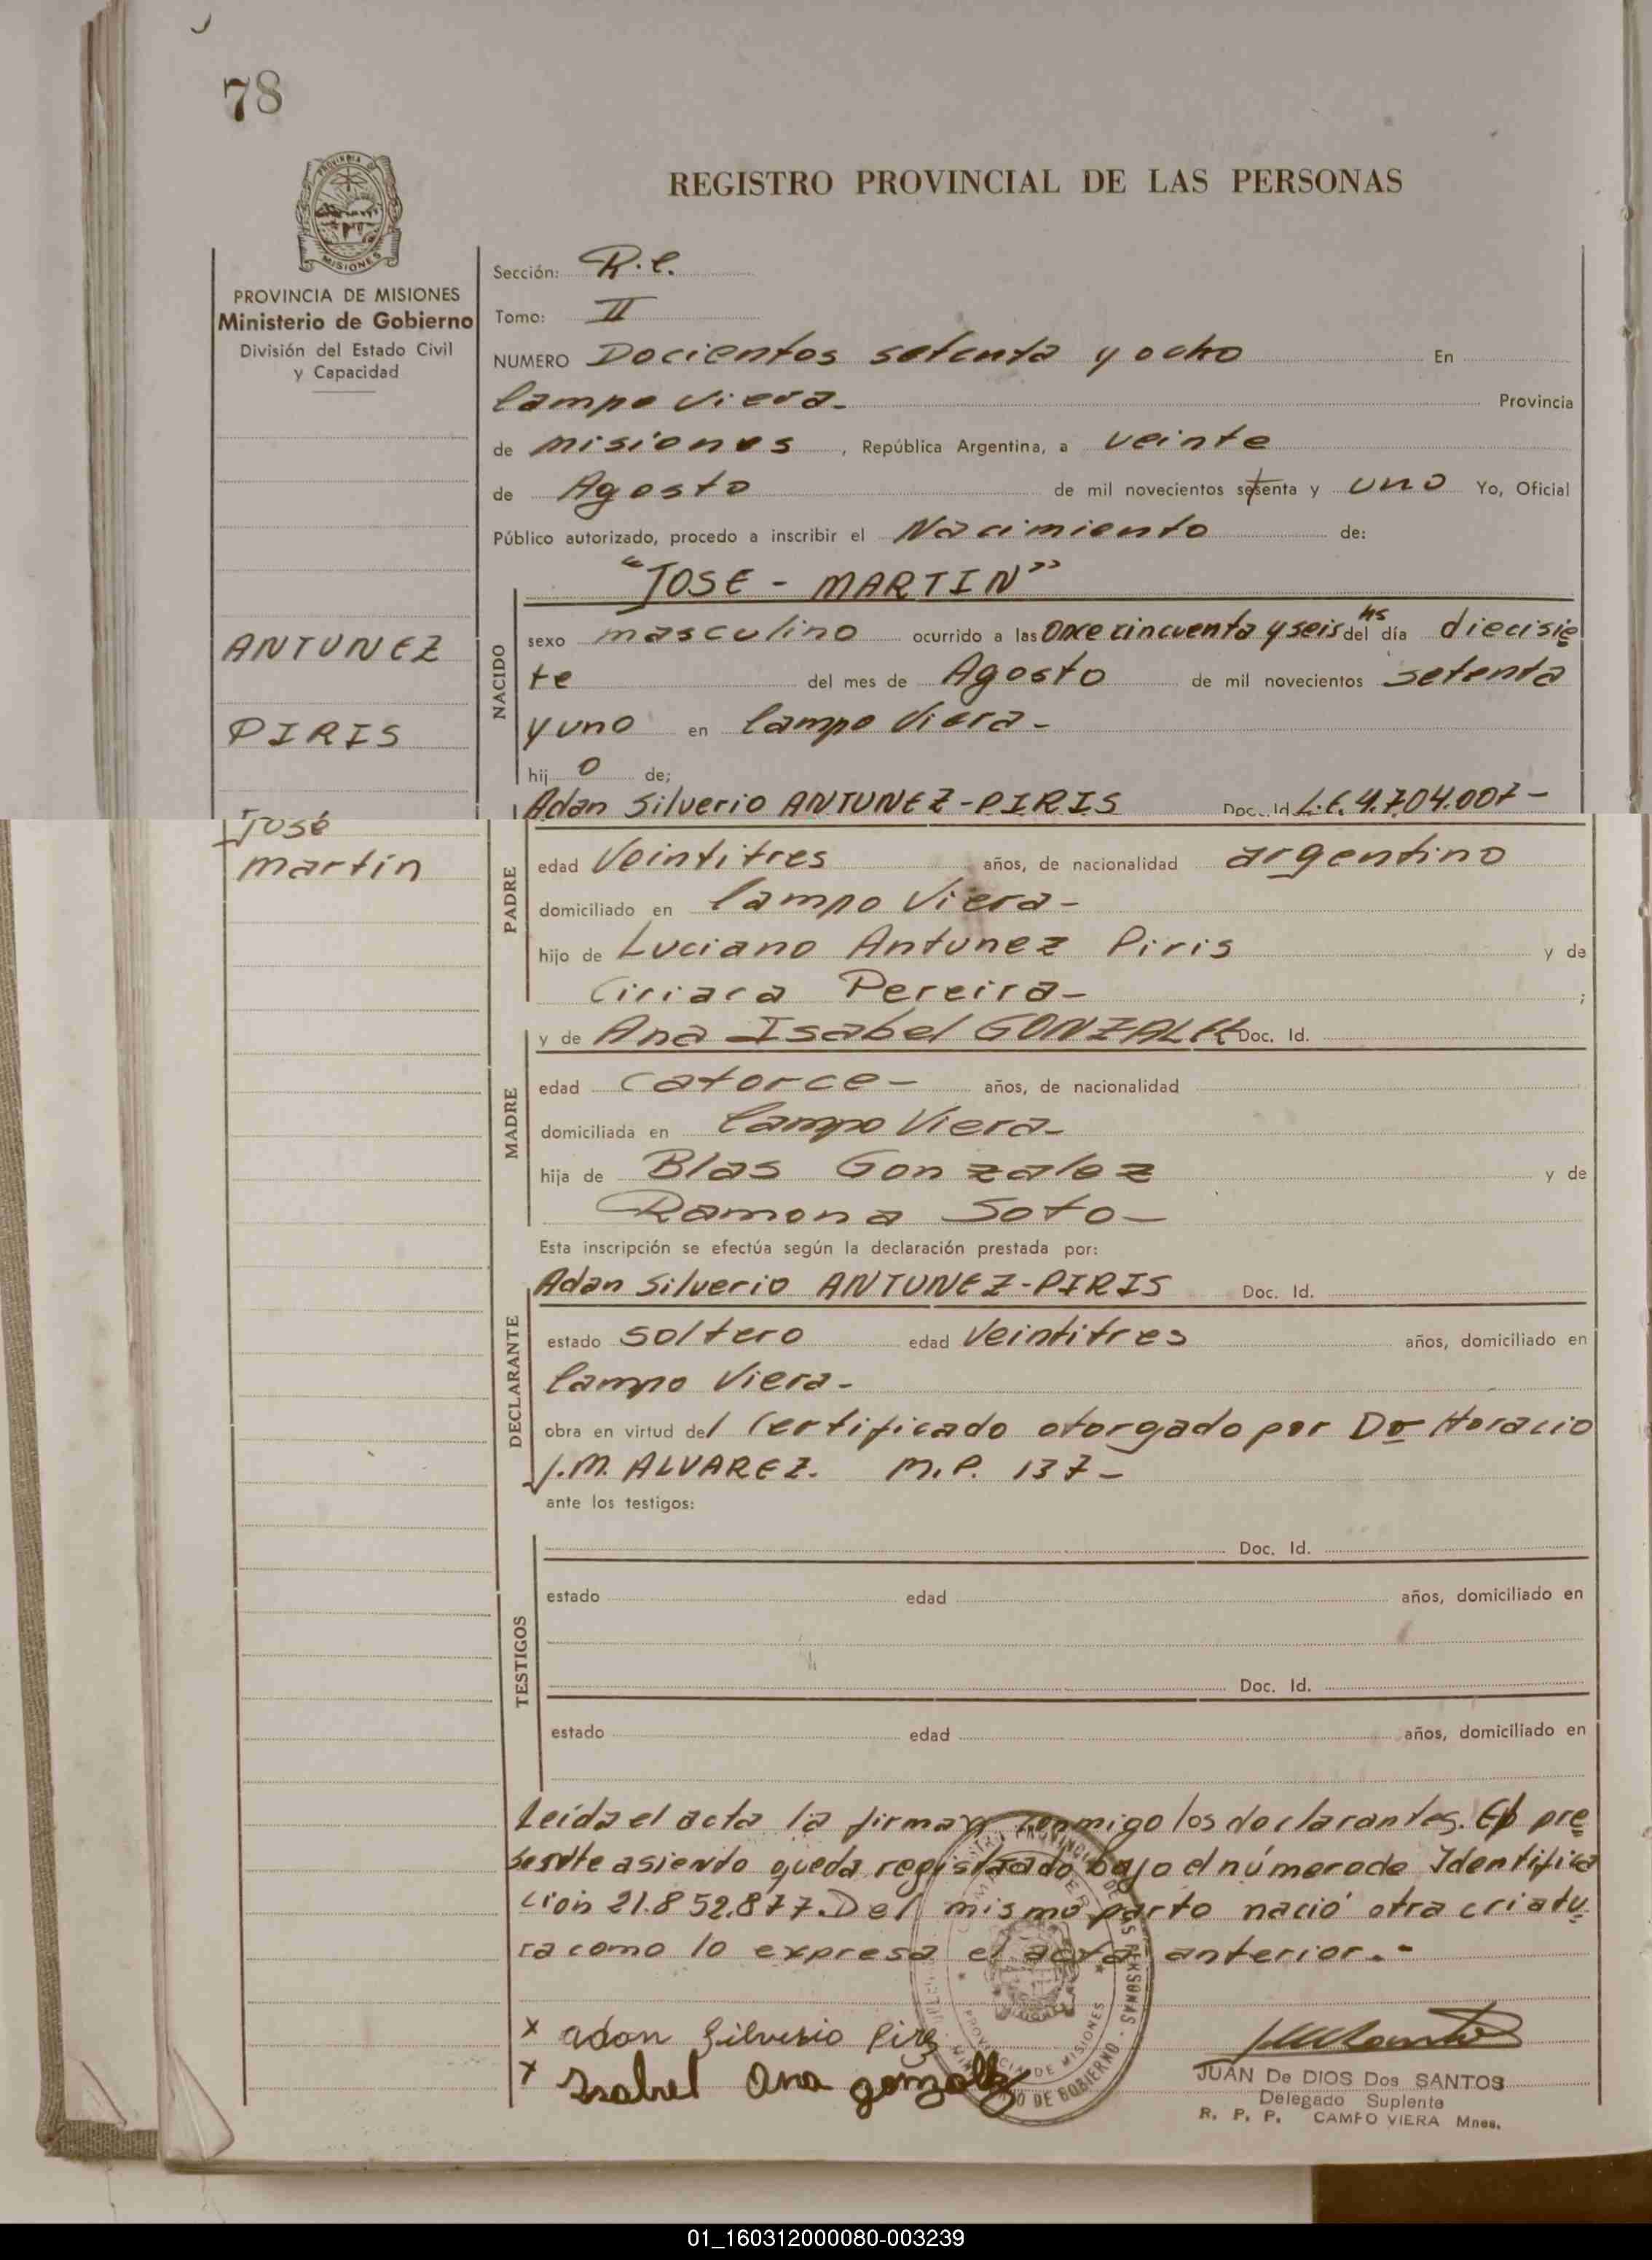 78
REGISTRO PROVINCIAL DE LAS PERSONAS
PROVINCIA DE MISIONES
Ministerio de Gobierno
División del Estado Civil
y Capacidad
Sección: R.C.
Tomo: II
NUMERO Docientos setenta y ocho En
Campo Viera- Provincia
de misiones, República Argentina, a veinte
de Agosto de mil novecientos setenta y uno Yo, Oficial
Público autorizado, procedo a inscribir el Nacimiento de:
"JOSE - MARTIN"
NACIDO
sexo masculino ocurrido a las Once cincuenta y seis hs del día diecisie
te del mes de Agosto de mil novecientos setenta
y uno en Campo Viera-
hij o de;
ANTUNEZ
PIRIS
José
martín
PADRE
Adan Silverio ANTUNEZ-PIRIS Doc. Id L.E. 4.704.007-
edad Veintitres años, de nacionalidad argentino
domiciliado en Campo Viera-
hijo de Luciano Antunez Piris y de
Ciriaca Pereira- ;
MADRE
y de Ana Isabel GONZALEZ Doc. Id.
edad catorce- años, de nacionalidad
domiciliada en Campo Viera-
hija de Blas Gonzalez y de
Ramona Soto-
Esta inscripción se efectúa según la declaración prestada por:
DECLARANTE
Adan Silverio ANTUNEZ-PIRIS Doc. Id.
estado soltero edad Veintitres años, domiciliado en
Campo Viera-
obra en virtud del Certificado otorgado por Dr Horacio
J.M. ALVAREZ. M.P. 137-
ante los testigos:
TESTIGOS
Doc. Id.
estado edad años, domiciliado en
Doc. Id.
estado edad años, domiciliado en
Leída el acta la firman conmigo los declarantes. El pre
sente asiento queda registrado bajo el número de Identifica
ción 21.852.877. Del mismo parto nació otra criatu
ra como lo expresa el acta anterior.-
x adan Silverio Piris
x Isabel Ana gonzalez
JUAN De DIOS Dos SANTOS
Delegado Suplente
R. P. P. CAMPO VIERA Mnes.
01_160312000080-003239